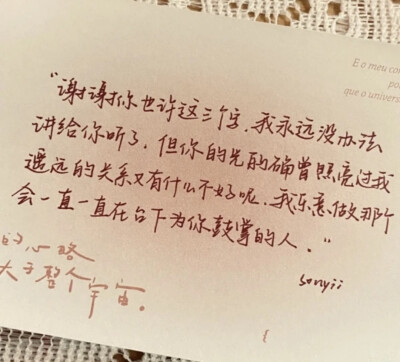 E o meu co
po
que o univers
“谢谢你也许这三个字，我永远没办法
讲给你听了，但你的光的确曾照亮过我
遥远的关系又有什么不好呢，我乐意做那个
会一直一直在台下为你鼓掌的人。”
sonyii
的心略
大于整个宇宙。